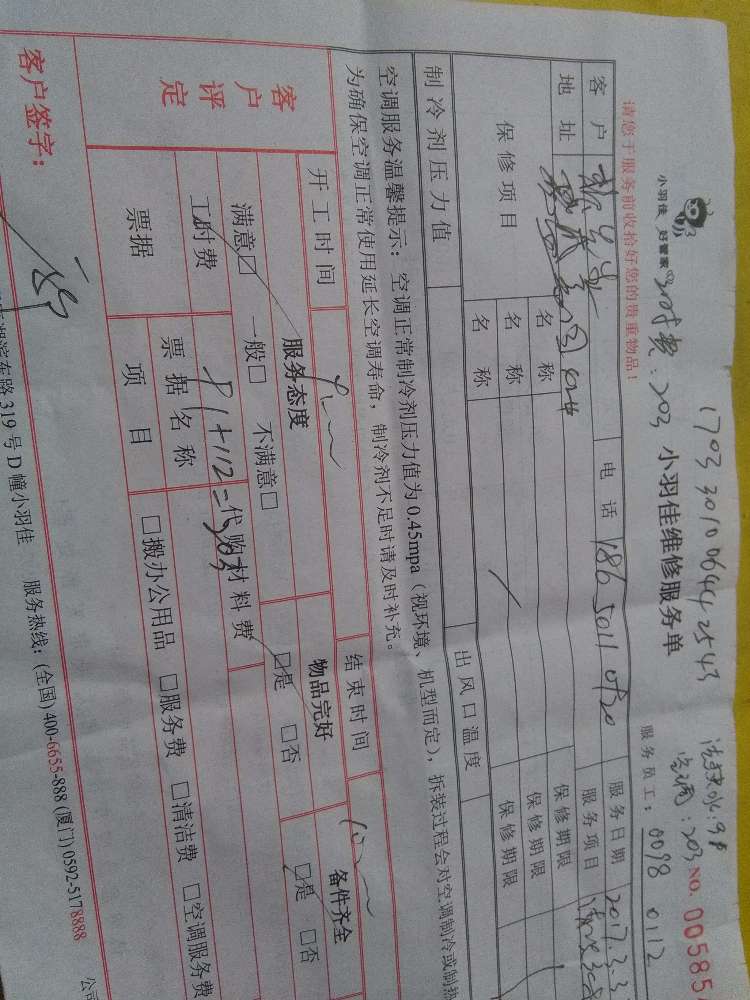 1703301006442543
小羽佳 好管家
203
小羽佳维修服务单
空调:203
NO. 00585
请您于服务前收拾好您的贵重物品!
服务员工: 0098 0112
客户
电话 186 5011 0720
服务日期 2017.3.3
地址
服务项目
保修项目
名称
保修期限
名称
保修期限
名称
保修期限
制冷剂压力值
出风口温度
空调服务温馨提示: 空调正常制冷剂压力值为0.45mpa(视环境、机型而定), 拆装过程会对空调制冷或制热
为确保空调正常使用延长空调寿命, 制冷剂不足时请及时补充。
开工时间
结束时间
客户评定
服务态度
物品完好
备件齐全
满意□ 一般□ 不满意□
□是 □否
□是 □否
工时费
代购材料费
91+112=203
票据
票据名称
□搬办公用品 □服务费 □清洁费 □空调服务费
项目
客户签字:
东路319号D幢小羽佳 服务热线: (全国)400-6655-888 (厦门)0592-5178888